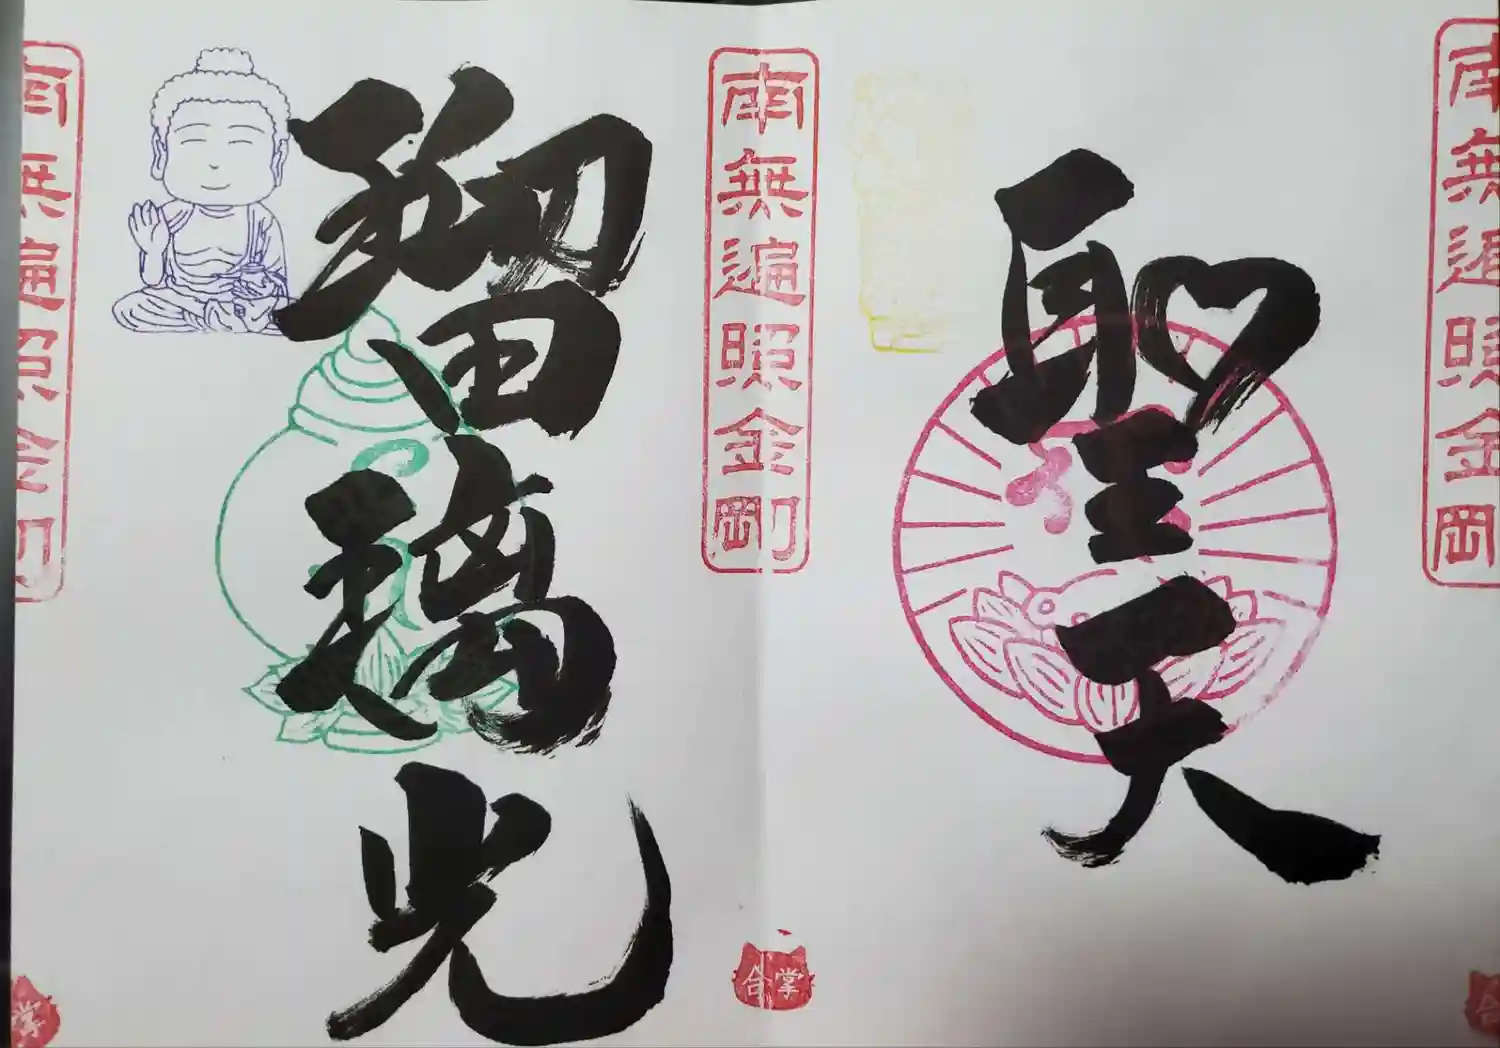 聖天
南無遍照金剛
瑠璃光
合掌
南無遍照金剛
南無遍照金剛
掌
合